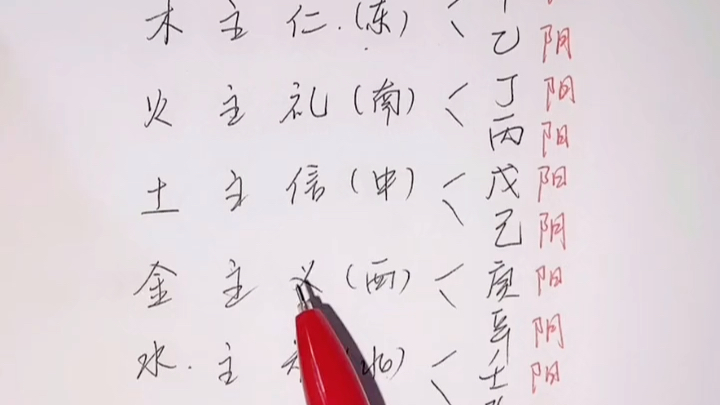 木 主 仁.(东) 乙 阴
火 主 礼(南) 丁 阳
丙 阳
土 主 信(中) 戊 阳
己 阴
金 主 义(西) 庚 阳
辛 阴
水.主 (北) 壬 阳